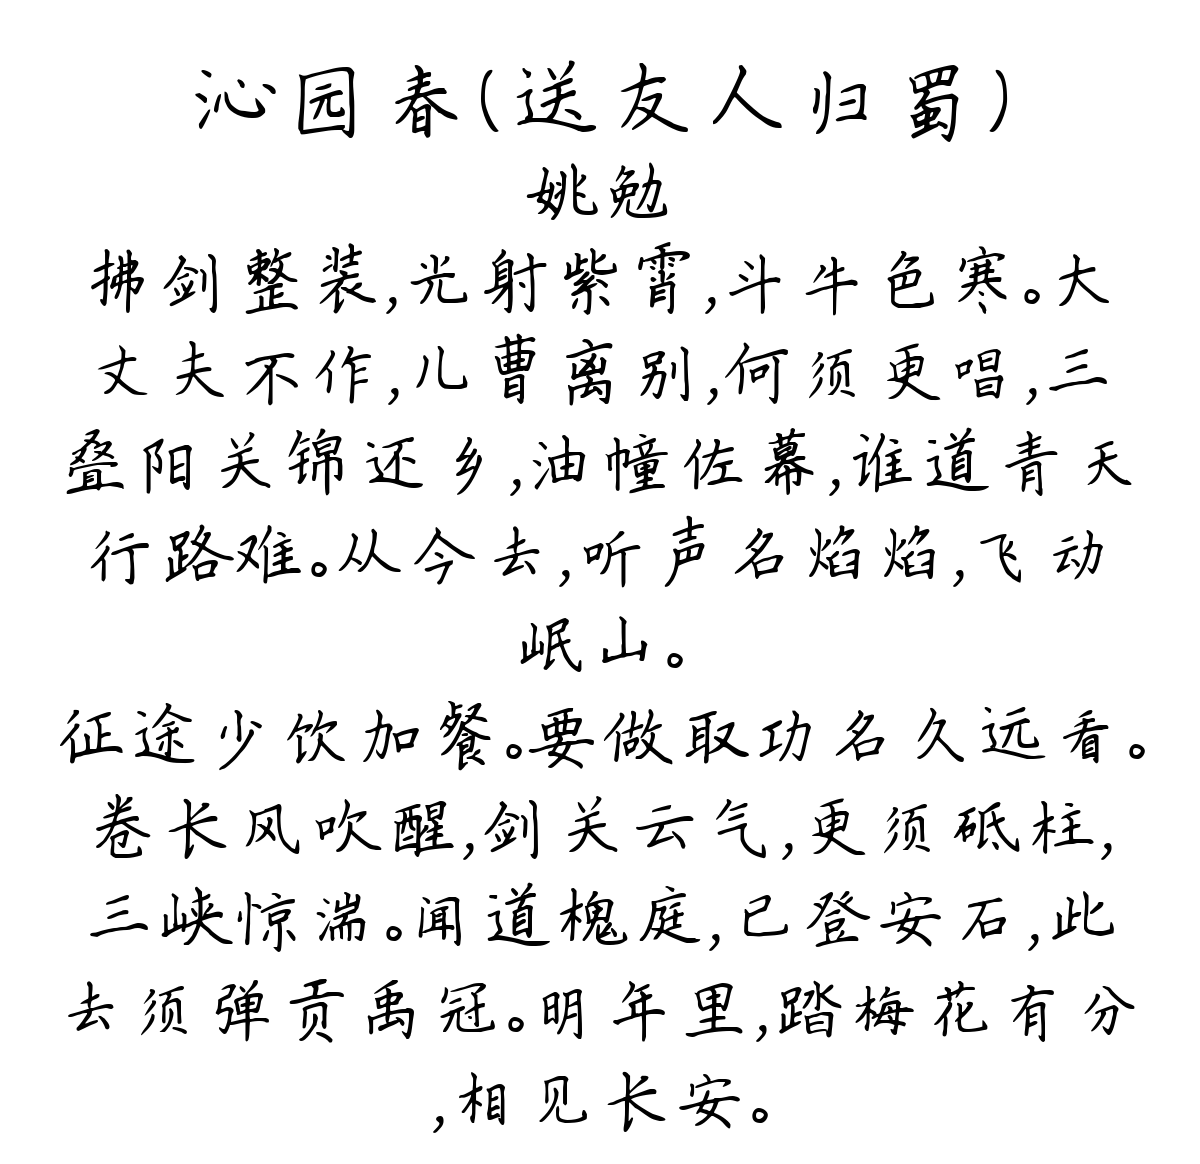 沁园春(送友人归蜀)
姚勉
拂剑整装,光射紫霄,斗牛色寒。大
丈夫不作,儿曹离别,何须更唱,三
叠阳关锦还乡,油幢佐幕,谁道青天
行路难。从今去,听声名焰焰,飞动
岷山。
征途少饮加餐。要做取功名久远看。
卷长风吹醒,剑关云气,更须砥柱,
三峡惊湍。闻道槐庭,已登安石,此
去须弹贡禹冠。明年里,踏梅花有分
,相见长安。